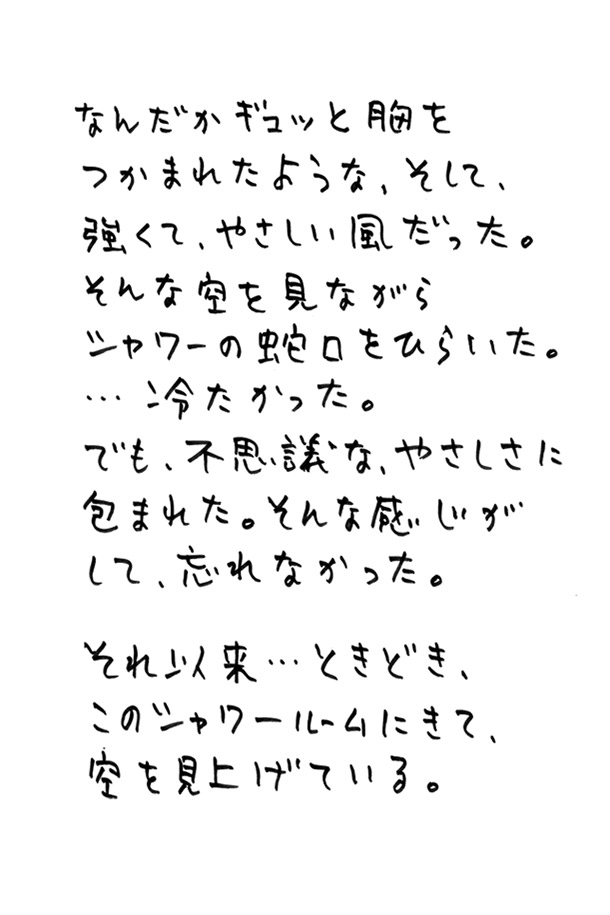 なんだかギュッと胸を
つかまれたような、そして、
強くて、やさしい風だった。
そんな空を見ながら
シャワーの蛇口をひらいた。
…冷たかった。
でも、不思議な、やさしさに
包まれた。そんな感じが
して、忘れなかった。
それ以来…ときどき、
このシャワールームにきて、
空を見上げている。